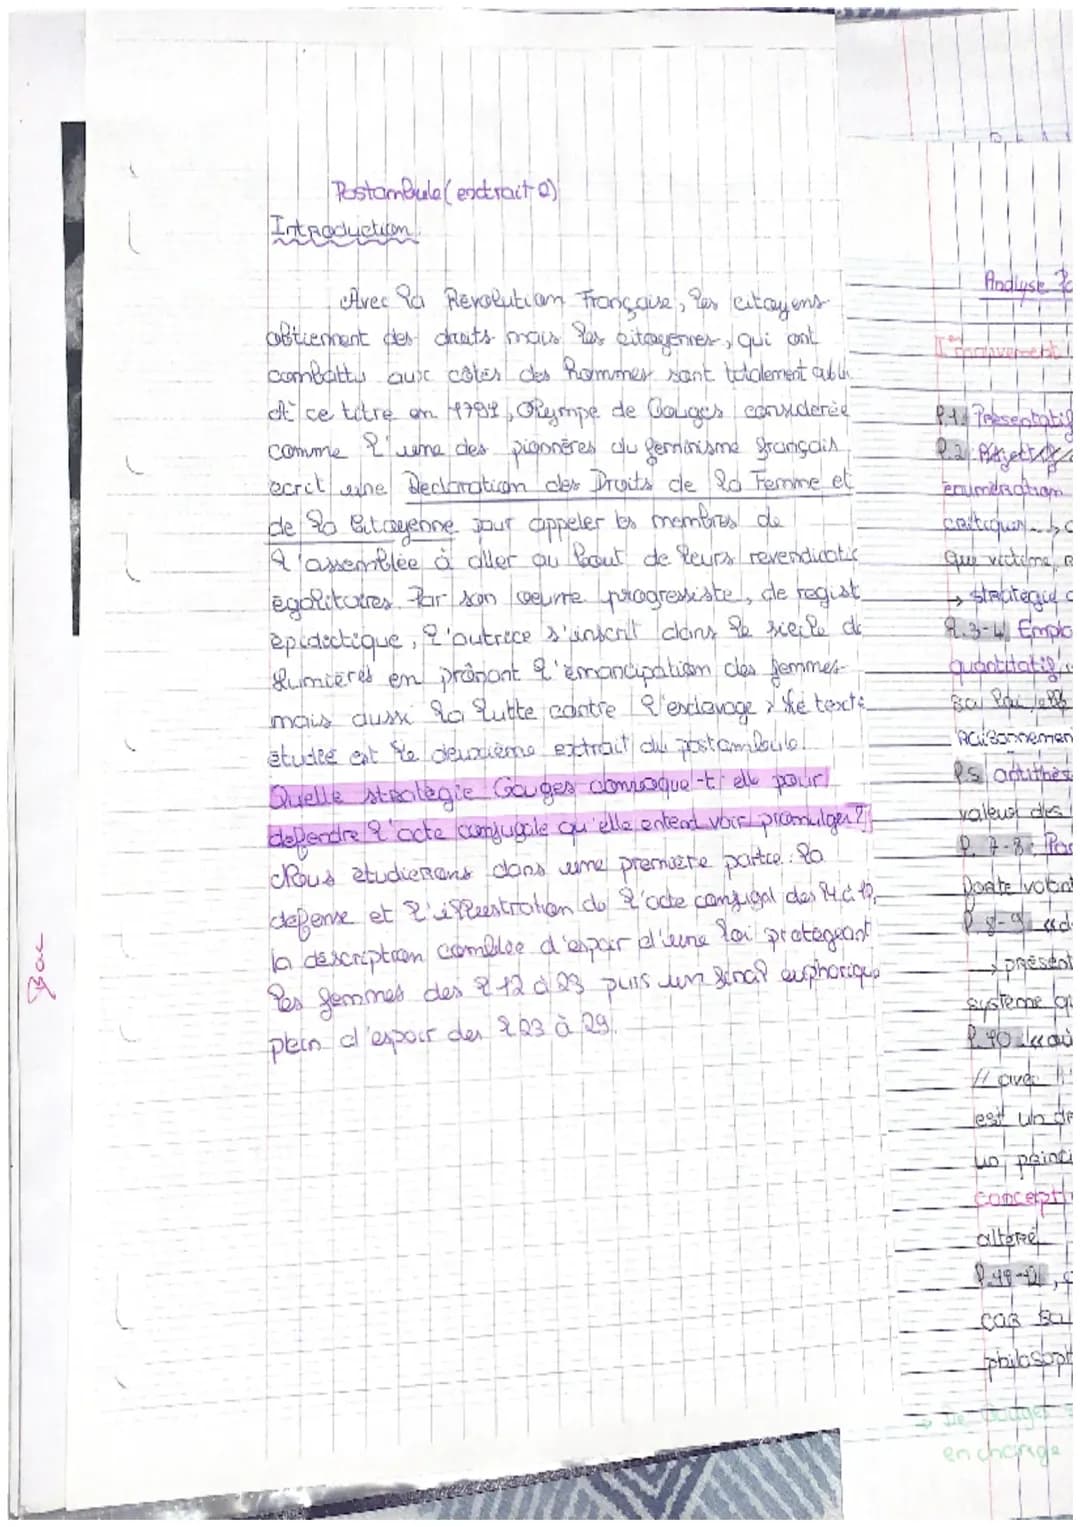 Postambule (extrait 2)
Introduction.
Avec la Révolution Française, les citoyens
obtiennent des droits mais les citoyennes, qui ont
combattu aux côtés des hommes sont totalement
A ce titre en 1791, Olympe de Gouges considérée
comme l'une des pionnères du féminisme français
écrit une Declaration des Droits de la Femme et
de la Citoyenne pour appeler les membres de
l'assemblée à aller au bout de leurs revendicatio
égalitaires. Par son oeuvre progressiste, de regist
épidictique, l'autrice s'inscrit dans le siecle de
lumières en prônant l'émancipation des femmes
mais aussi la lutte contre l'esclavage. Le texte
étudié est le deuxième extrait du postambule.
Quelle stratégie Gouges convoque-t-elle pour
defendre l'acte conjugale qu'elle entend voir promulger ?
Nous étudierons dans une première partie : la
defense et l'illustration de l'acte conjugal des l.1 à 12,
la description comblée d'espoir d'une loi protégeant
les femmes des l 12 à 23 puis un final euphorique
plein d'espoir des l 23 à 29.
Bac
Analyse
1er mouvement
l.1 Présentatif
l.2
énumération
critiquer
que victime
→ stratégie
l.3-4 Emplo
quantitatif
sa loi
Raisonnemen
l.5 antithès
valeur des
l. 7-8 : Par
porte volont
l. 8-9
→ présent
système qu
l.10 « où
// avec
est un dr
un princi
concepti
altéré
l.11-12
car sa
philosoph
→ De Gouges
en change